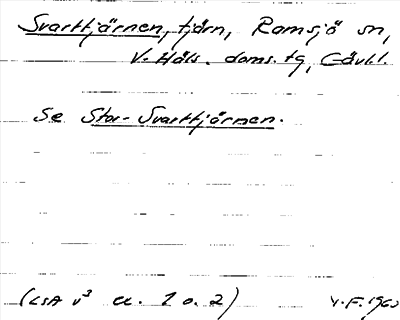 Svarttjärnen, tjärn, Ramsjö sn,
V. Häls. doms. tg, Gävl.l.
Se Stor-Svarttjärnen.
(LSA v³ a. 1 o. 2)
V.F. 1960